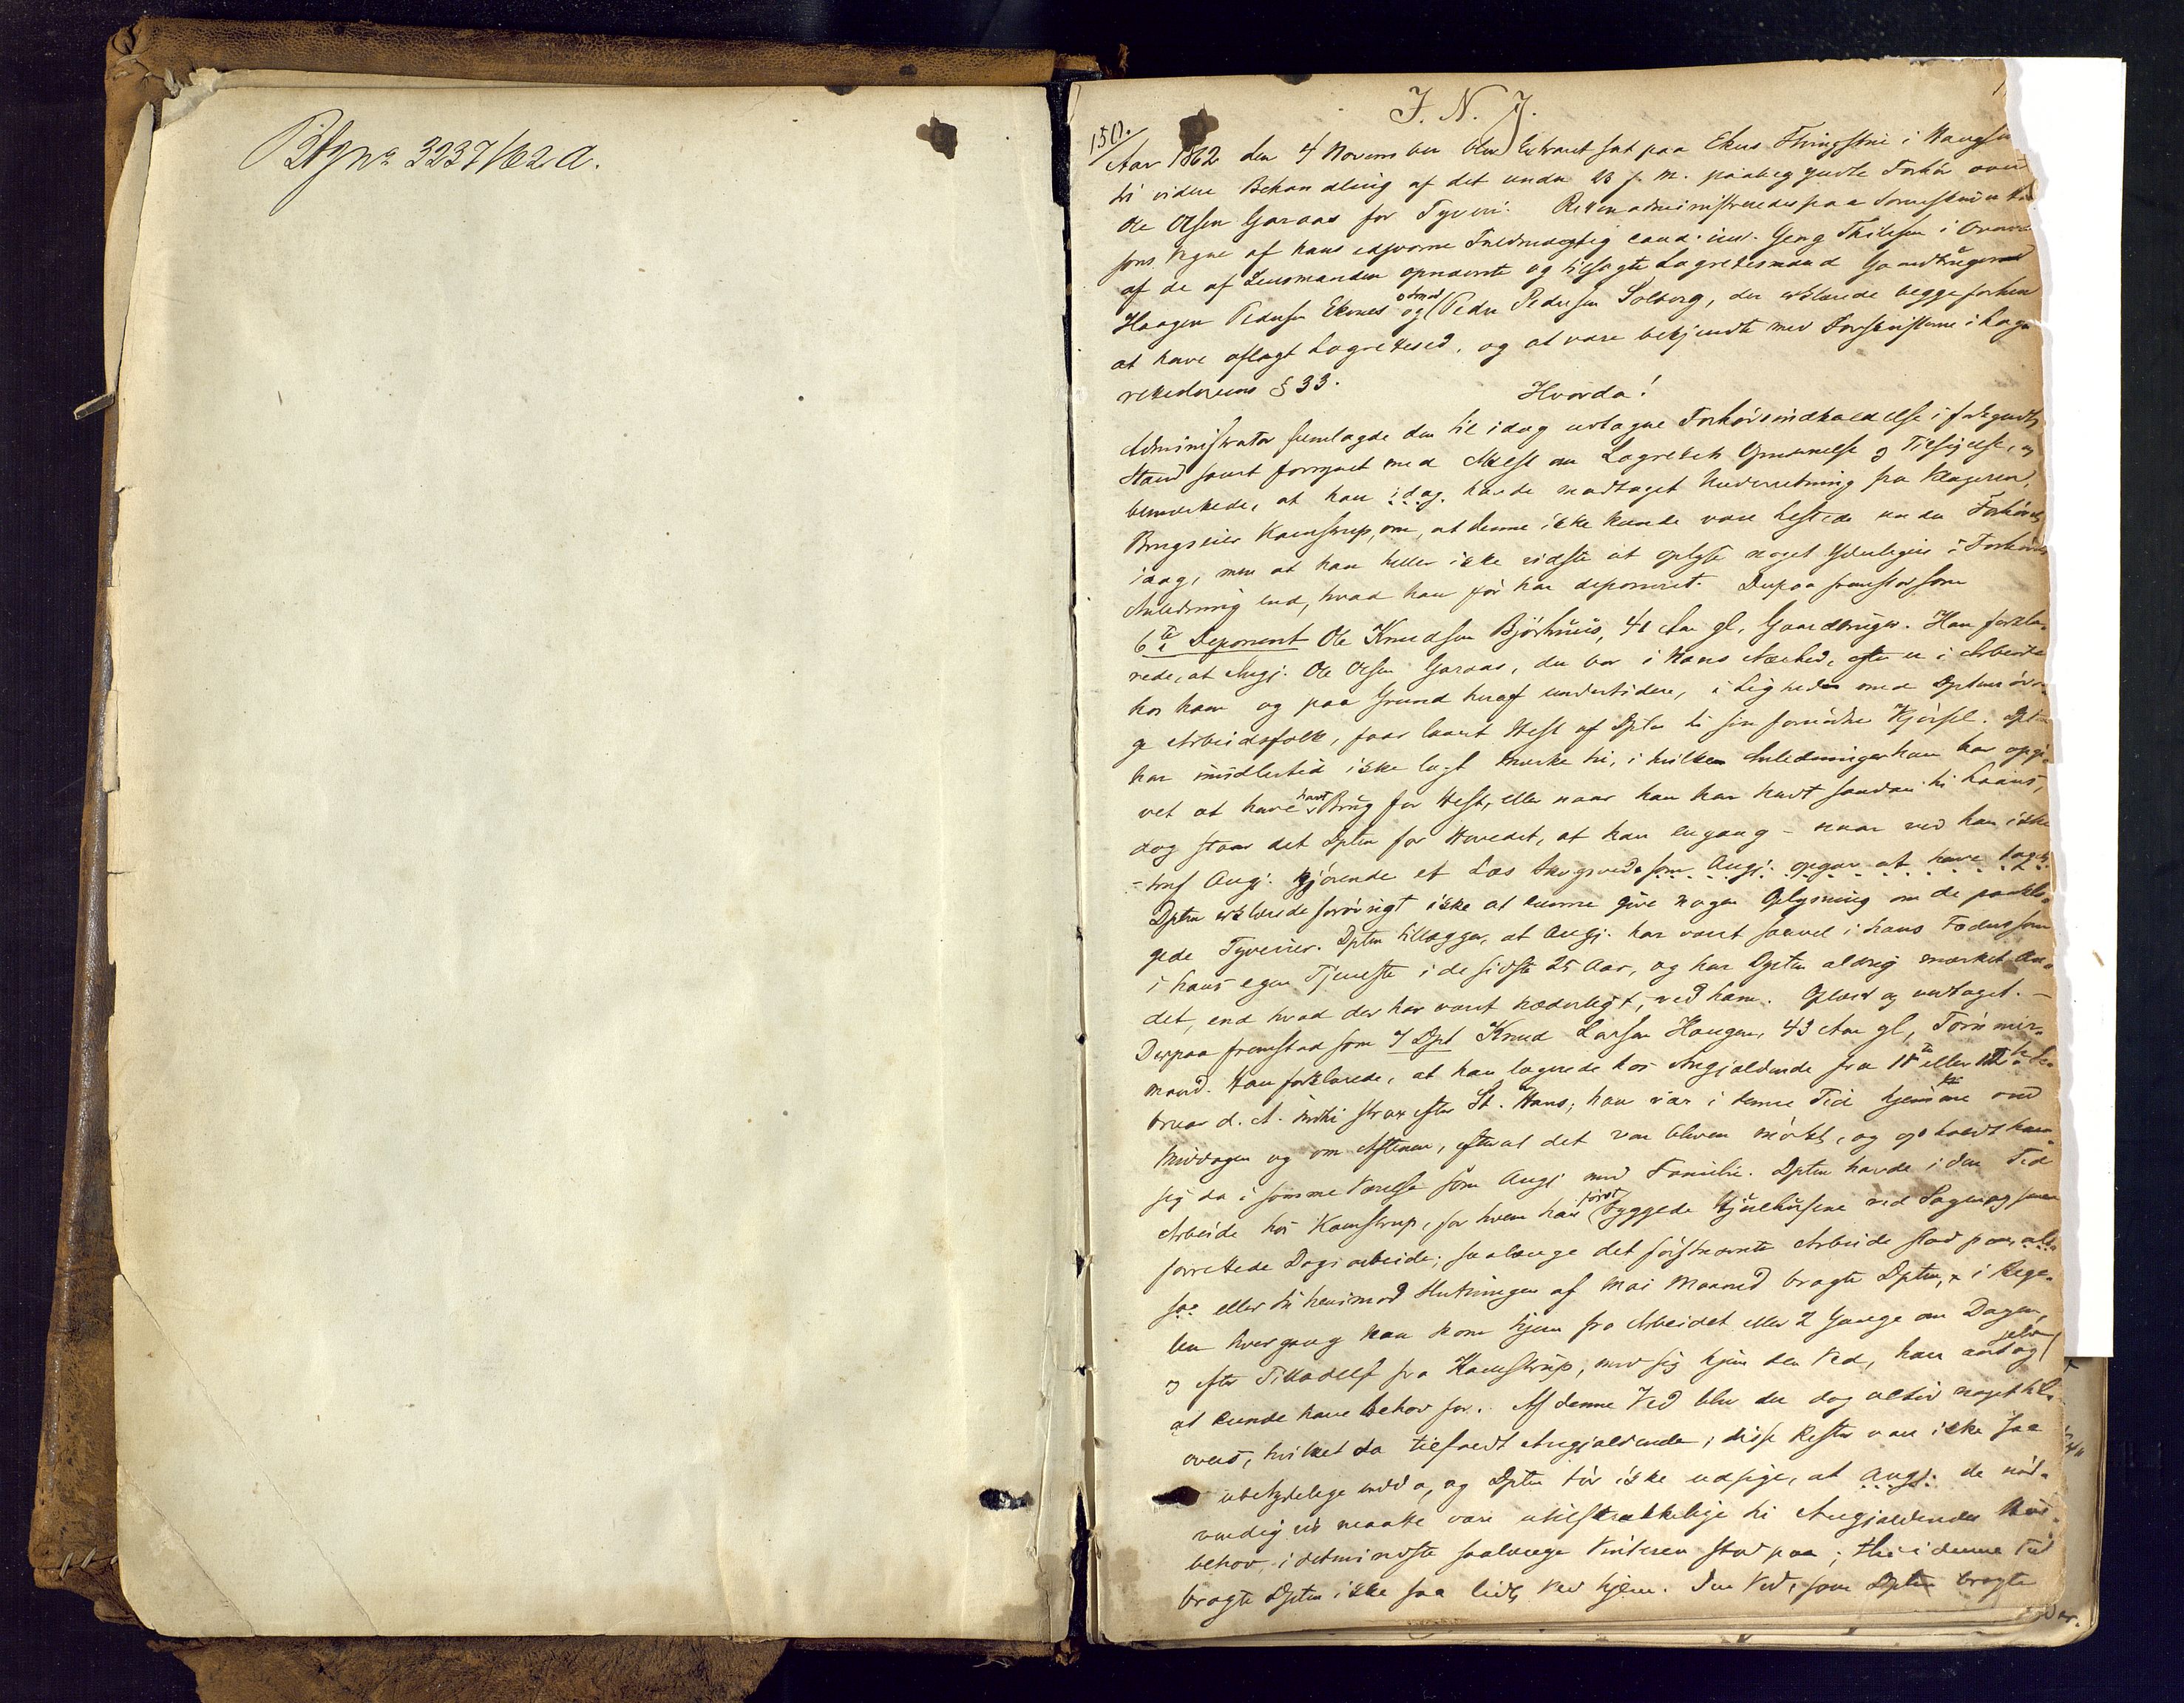 Btgn° 3237/62 a.
150/
J. N. J.
Aar 1862 den 4 November blev Extraret sat paa Ekenes Thingsted i
til videre Behandling af det under 23 f. M. paabegyndte Forhör over
Ole Olsen Garaas for Tyveri. Retten administreredes paa Sorenskriver
sons Vegne af hans edsvorne Fuldmægtig cand. jur. Georg Thilesen i Overvær
af de af Lensmanden opnævnte og tilsagte Lagrettesmænd Gaardbrugerne
Haagen Pedersen Ekenes og Peder Pedersen Solberg, der erklærede begge forhen
at have aflagt Lagrettesed, og at være bekjendte med Forskrifterne i Lag-
retteslovens § 33.
Hvorda!
Administrator fremlagde den til idag udtagne Forhörsindkaldelse i forkyndt
Stand samt forsynet med Attest om Lagrettets Opnævnelse og Tilsigelse, og
bemærkede, at han idag havde modtaget Underretning fra Klageren,
Brugseier Kamstrup, om, at denne ikke kunde være tilstede under Forhöret
idag, men at han heller ikke vidste at oplyse noget Yderligere i Forhörets
Anledning end, hvad han för har deponeret. Derpaa fremstod som
6te Deponent Ole Knudsen Björhuus, 41 Aar gl., Gaardbruger. Han forkla-
rede, at Angj. Ole Olsen Garaas, der bor i Hans Nærhed, ofte er i Arbeide
hos ham og paa Grund heraf undertiden, i Lighed med Dptens övri-
ge Arbeidsfolk, faar laant Hest af Dpten til sin fornödne Kjörsel. Dpten
har imidlertid ikke lagt Mærke til, i hvilken Anledninger han har opgi-
vet at have havt Brug for Hest, eller naar han har havt saadan til Laans,
dog staar det Dpten for Hovedet, at han engang – naar ved han ikke
– traf Angj. kjörende et Læs Skogved, som Angj. opgav at have taget
Dpten erklærede forövrigt ikke at kunne give nogen Oplysning om de paakla-
gede Tyverier. Dpten tillægger, at Angj. har været saavel i hans Faders som
i hans egen Tjeneste i de sidste 25 Aar, og har Dpten aldrig mærket An-
det, end hvad der har været hæderligt, ved ham. Oplæst og vedtaget. –
Derpaa fremstod som 7 Dpt Knud Larsen Haugen, 43 Aar gl., Tömmer-
mand. Han forklarede, at han logerede hos Angjældende fra 11te eller 12te
bruar d. A. indtil strax efter St. Hans; han var i denne Tid hjemme om
Middagen og om Aftenen, efterat det var bleven mörkt, og opholdt han
sig da i samme Værelse som Angj. med Familie. Dpten havde i den Tid
Arbeide hos Kamstrup, for hvem han först byggede Hjulhusene ved Sagen og senere
forrettede Dagsarbeide; saalænge det förstnævnte Arbeide stod paa, alt-
saa eller til henimod Slutningen af Mai Maaned bragte Dpten, i Rege-
len hvergang han kom hjem fra Arbeidet eller 2 Gange om Dagen,
og efter Tilladelse fra Kamstrup, med sig hjem den Ved, han selv antog
at kunde have behov for. Af denne Ved blev der dog altid noget til-
overs, hvilket da tilfaldt Angjældende; disse Rester var ikke saa
ubetydelige endda, og Dpten tör ikke udsige, at Angj. de nöd-
vendigvis maatte være utilstrækkelige til Angjældendes Huus-
behov, i detmindste saalænge Vinteren stod paa; thi i denne Tid
bragte Dpten ikke saa lidt Ved hjem. Den Ved, som Dpten bragte